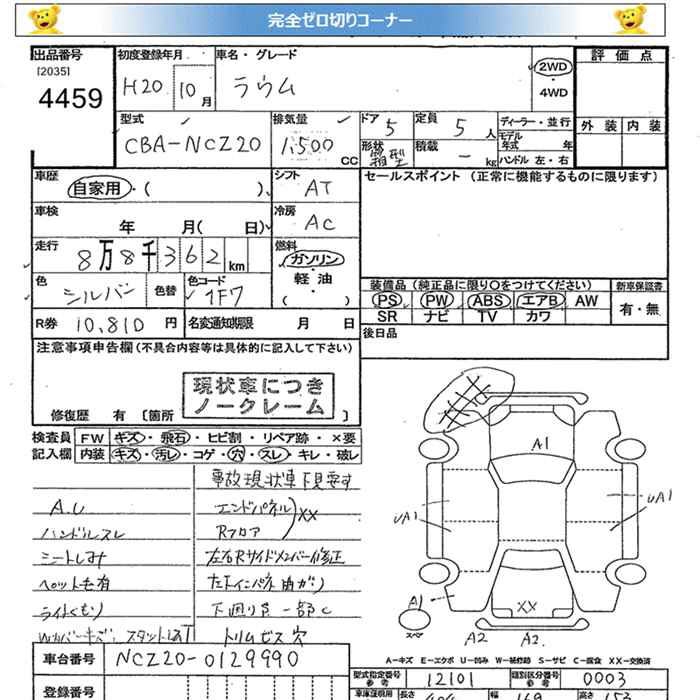 完全ゼロ切りコーナー
出品番号 初度登録年月 車名・グレード 評価点
[2035]
4459 H20 10月 ラウム 2WD・4WD
型式 排気量 ドア 定員 ディーラー・並行 外装 内装
CBA-NCZ20 1,500 CC 5 5人 モデル年式 年
形状 箱型 積載 - kg ハンドル 左・右
車歴 シフト セールスポイント (正常に機能するものに限ります)
自家用・( ) AT
車検 冷房
年 月( 日) AC
走行 燃料
8万8千362km ガソリン・軽油・( )
色 色替 色コード 装備品 (純正品に限り○をつけてください) 新車保証書
シルバー 1F7 PS PW ABS エアB AW 有・無
SR ナビ TV カワ
R券 10,810円 名変通知期限 月 日 後日品
注意事項申告欄(不具合内容等は具体的に記入して下さい)
現状車につき
ノークレーム
修復歴 有 [箇所
検査員 FW キズ・飛石・ヒビ割・リペア跡・×要
記入欄 内装 キズ・汚レ・コゲ・穴・スレ・キレ・破レ
事故現状車下見要す
A.U エンドパネル
ハンドルスレ Rフロア XX
シートしみ 左右Rサイドメンバー修正
ペット毛有
ライトくもり 下廻り色一部C
トリムビス穴
A1
UA1 UA1
A1
XX
スペア A2 A2
A-キズ E-エクボ U-凹み W-補修跡 S-サビ C-腐食 XX-交換済
車台番号 NCZ20-0129990
型式指定番号 参考 12101 類別区分番号 参考 0003
登録番号 車庫証明用 参考 長さ 幅 高さ